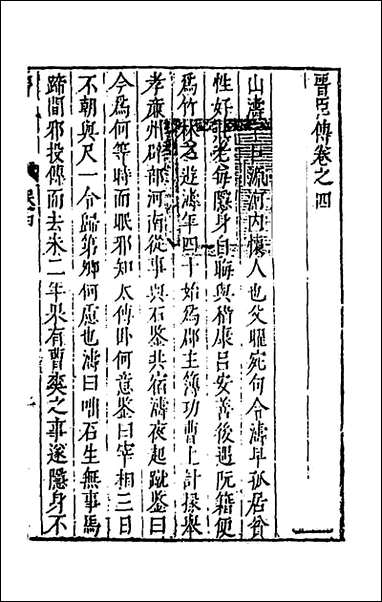 晉臣傳卷之四
山濤字巨源河內懷人也父曜宛句令濤早孤居貧
性好莊老每隱身自晦與嵇康呂安善後遇阮籍便
爲竹林之遊濤年四十始爲郡主簿功曹上計掾舉
孝廉州辟部河南從事與石鑒共宿濤夜起蹴鑒曰
今爲何等時而眠邪知太傅臥何意鑒曰宰相三日
不朝與尺一令歸第卿何慮也濤曰咄石生無事馬
蹄間邪投傳而去未二年果有曹爽之事遂隱身不